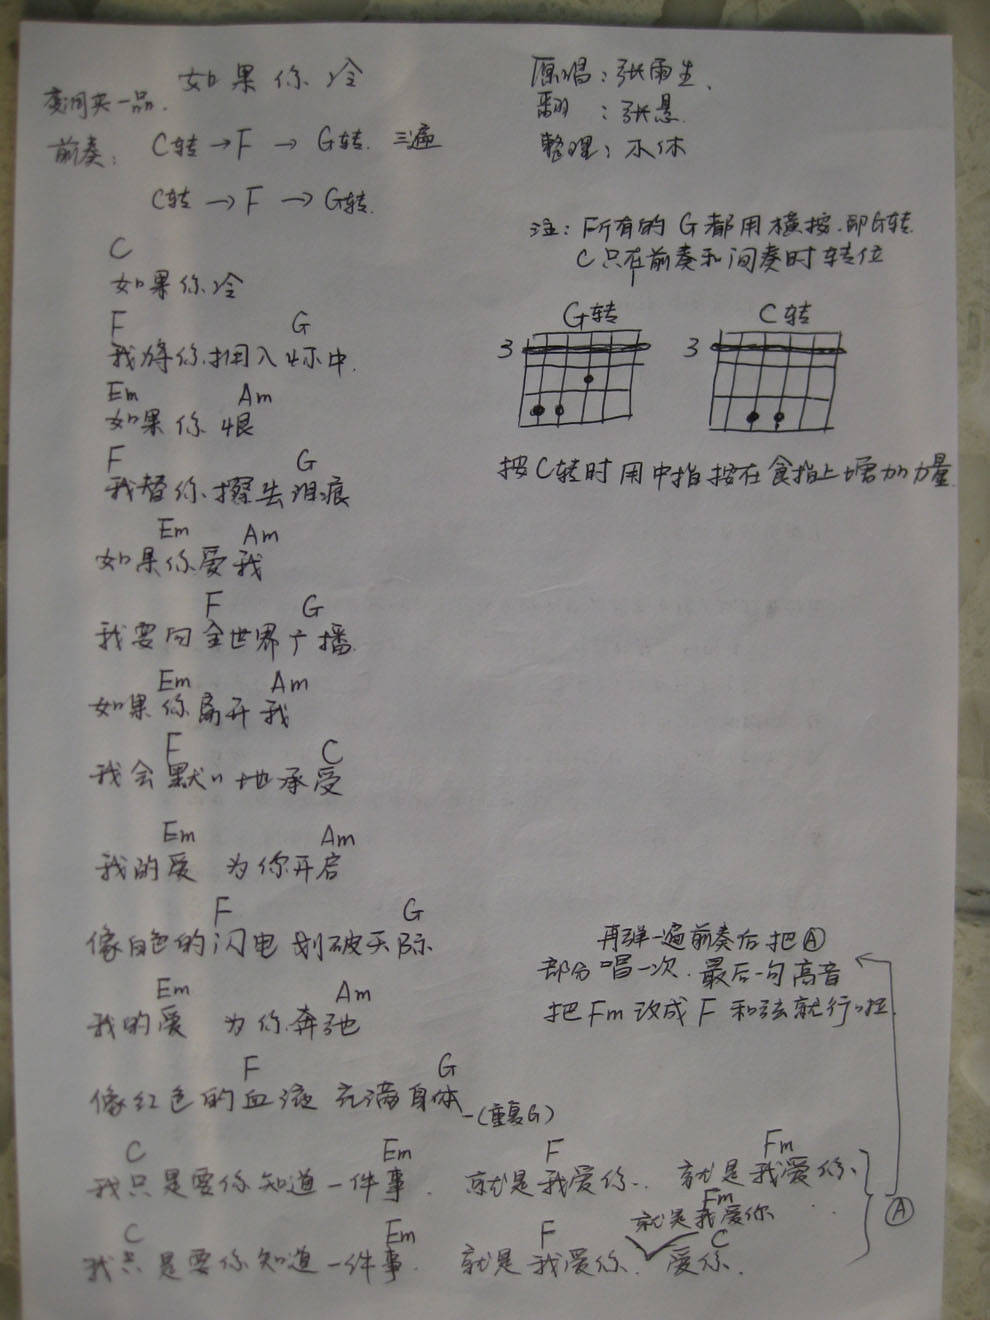 如果你冷
原唱：张雨生.
变调夹一品.
翻：张悬.
整理：木休
前奏：C转→F→G转. 三遍
C转→F→G转.
注：所有的G都用横按.即G转.
C只在前奏和间奏时转位
C
如果你冷
F G
我将你拥入怀中.
G转 C转
3 3
Em Am
如果你恨
F G
我替你擦去泪痕
按C转时用中指按在食指上增加力量.
Em Am
如果你爱我
F G
我要向全世界广播.
Em Am
如果你离开我
F C
我会默〃地承受
Em Am
我的爱 为你开启
F G
像白色的闪电 划破天际
再弹一遍前奏后把Ⓐ
部分唱一次.最后一句高音
把Fm改成F和弦就行啦
Em Am
我的爱 为你奔驰
F G
像红色的血液 充满身体-(重复G)
C Em F Fm
我只是要你知道一件事. 就是我爱你.. 就是我爱你..
Ⓐ
Fm
就是我爱你
C Em F C
我只是要你知道一件事. 就是我爱你. 爱你.